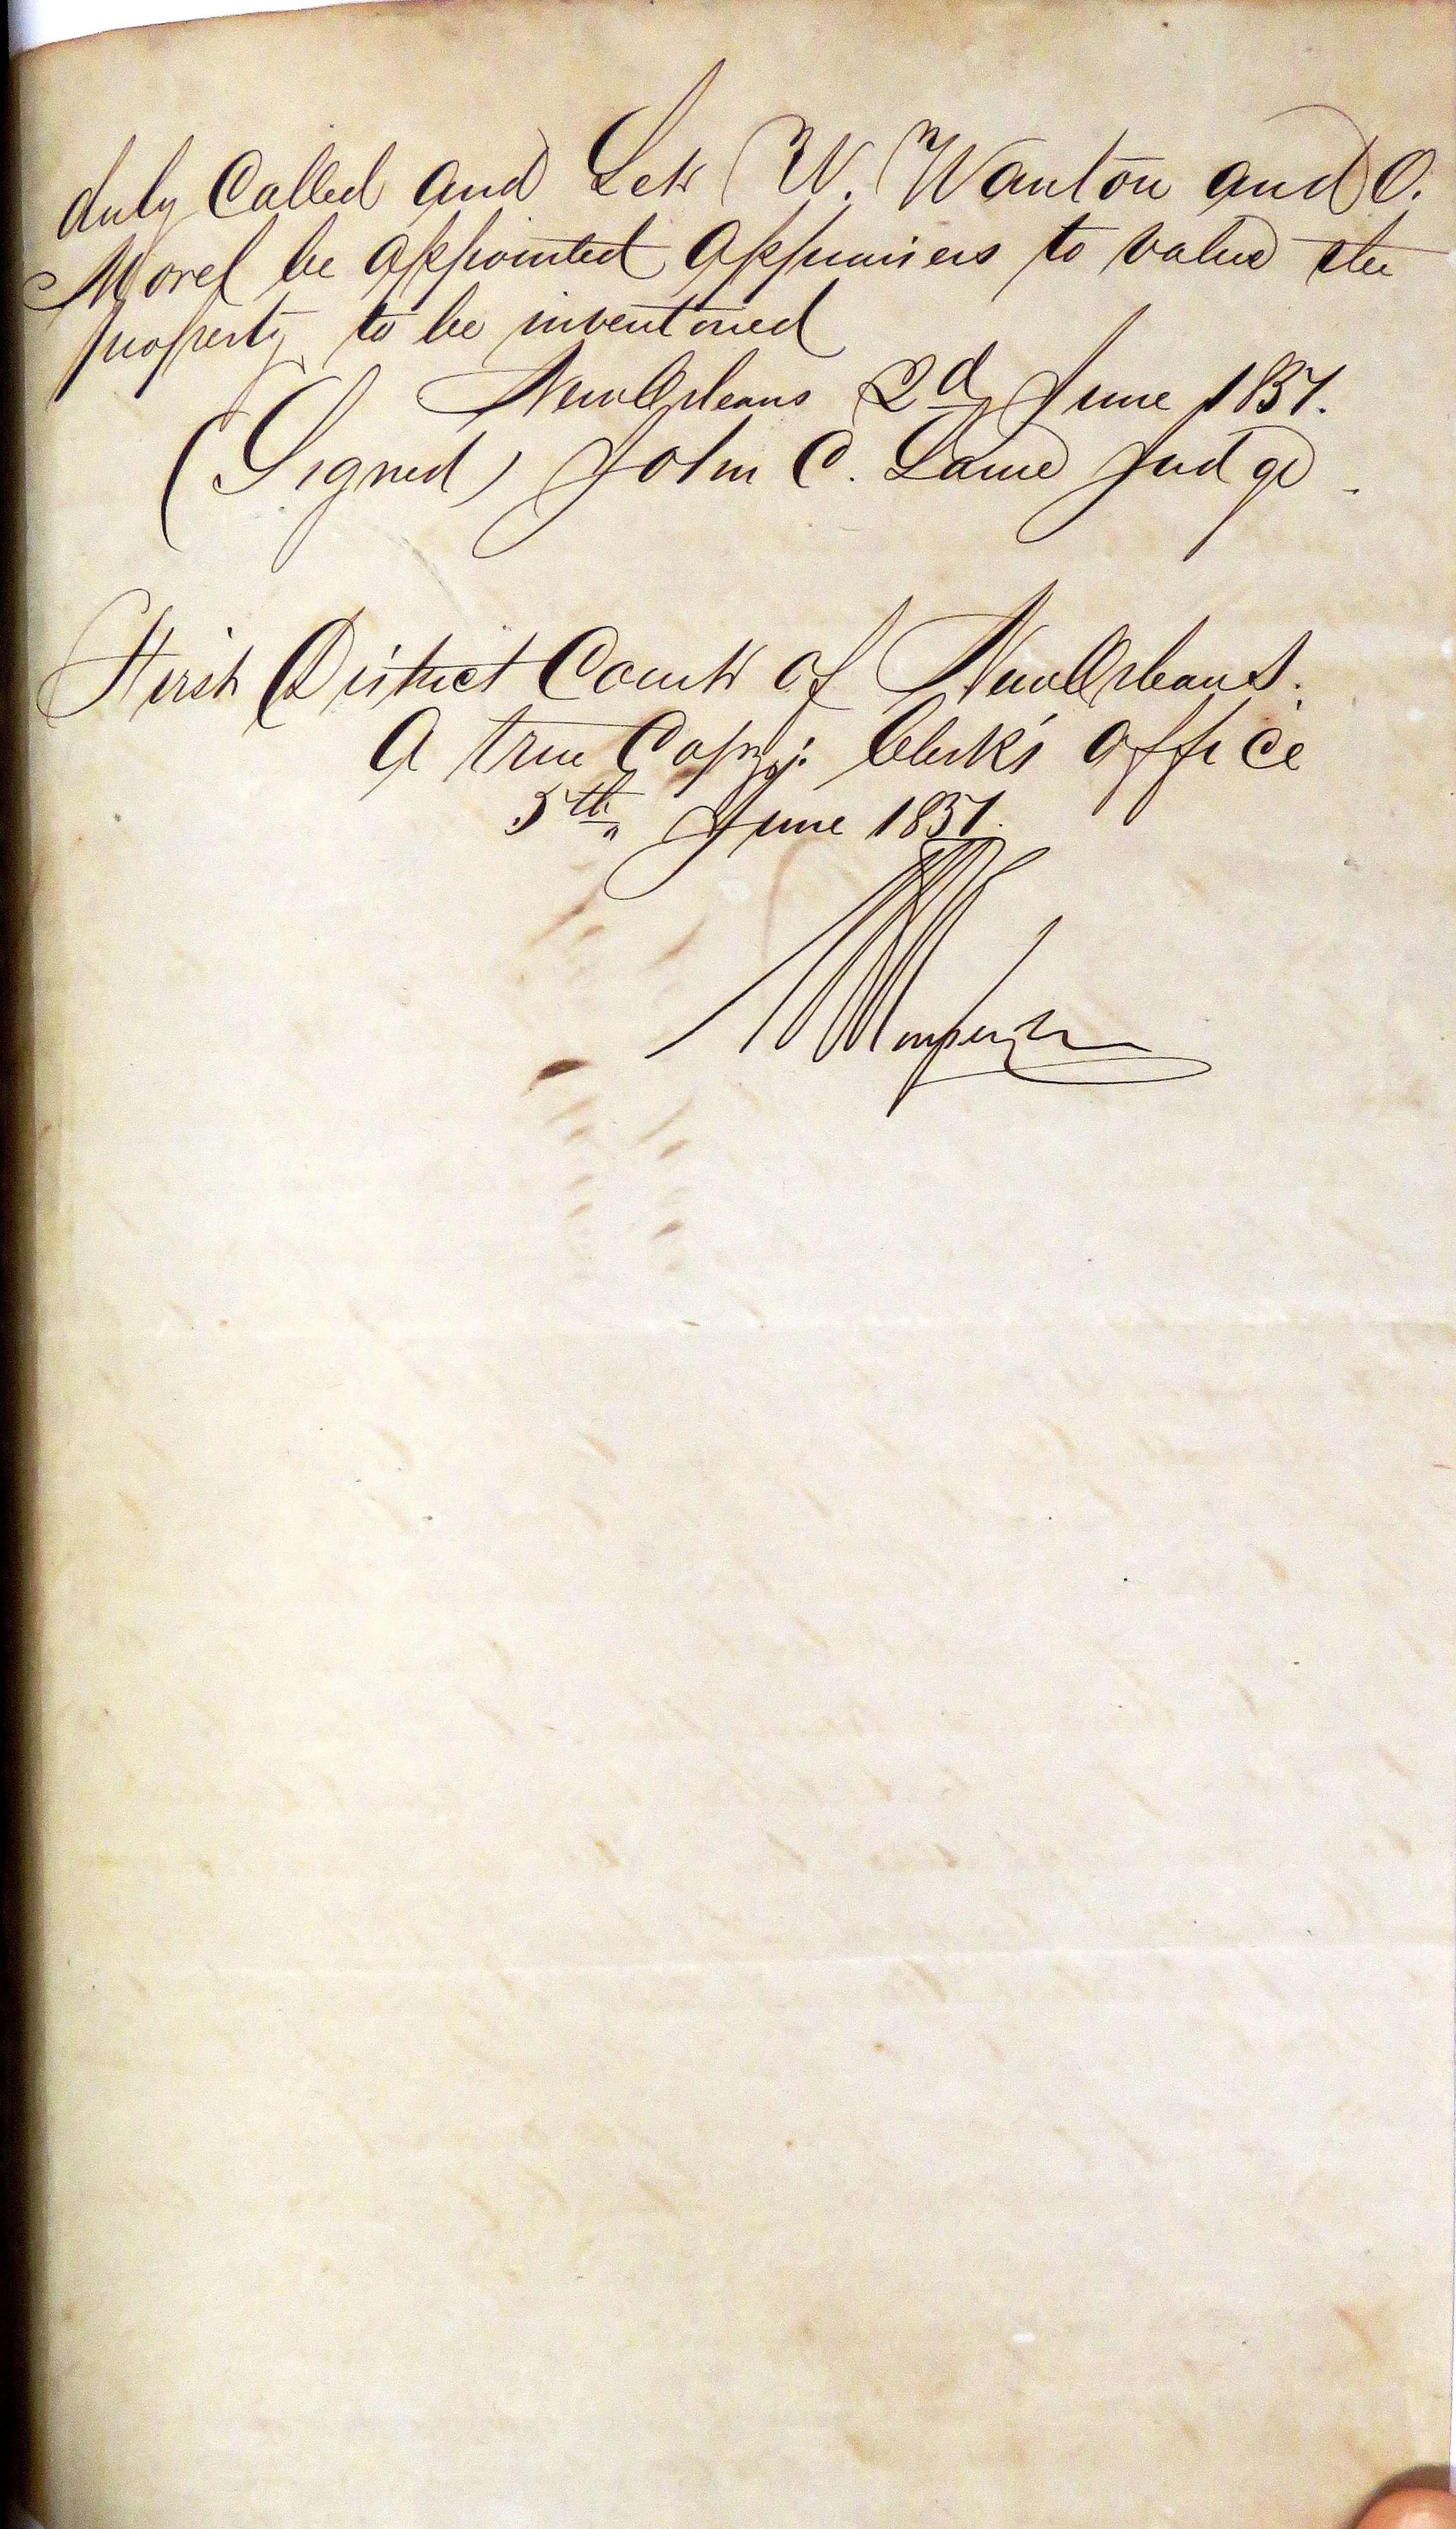 duly Called and Let W. Wanton and O.
Morel be appointed Appraisers to value the
property to be inventoried
New Orleans 2d June 1851.
(Signed) John C. Larue Judge.
First District Court of New Orleans.
A true Copy: Clerk's Office
5th June 1851.